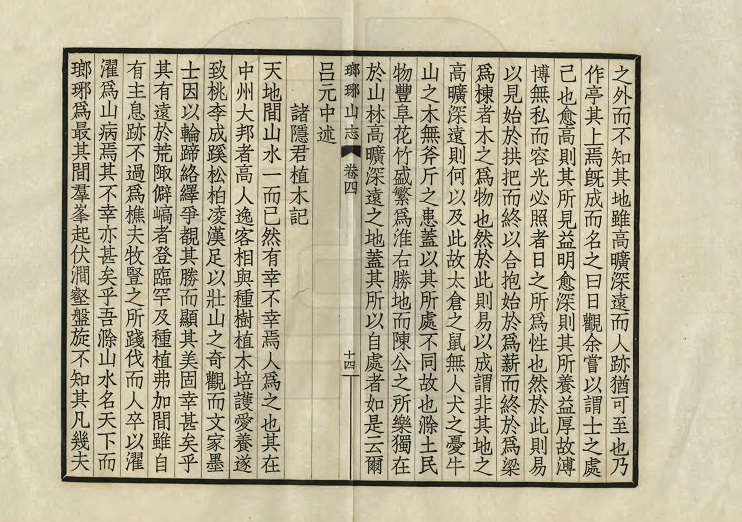 之外而不知其地雖高曠深遠而人跡猶可至也乃
作亭其上焉旣成而名之曰日觀余嘗以謂士之處
己也愈高則其所見益明愈深則其所養益厚故溥
博無私而容光必照者日之所爲性也然於此則易
以見始於拱把而終以合抱始於爲薪而終於爲梁
爲棟者木之爲物也然於此則易以成謂非其地之
高曠深遠則何以及此故太倉之鼠無人犬之憂牛
山之木無斧斤之患蓋以其所處不同故也滁土民
物豐阜花竹盛繁爲淮右勝地而陳公之所樂獨在
於山林高曠深遠之地蓋其所以自處者如是云爾
瑯琊山志 卷四 十四
呂元中述
諸隱君植木記
天地間山水一而已然有幸不幸焉人爲之也其在
中州大邦者高人逸客相與種樹植木培護愛養遂
致桃李成蹊松柏凌漢足以壯山之奇觀而文家墨
士因以輪蹄絡繹爭覩其勝而顯其美固幸甚矣乎
其有遠於荒陬僻嵪者登臨罕及種植弗加間雖自
有主息跡不過爲樵夫牧豎之所踐伐而人卒以濯
濯爲山病焉其不幸亦甚矣乎吾滁山水名天下而
瑯琊爲最其間羣峯起伏澗壑盤旋不知其凡幾夫